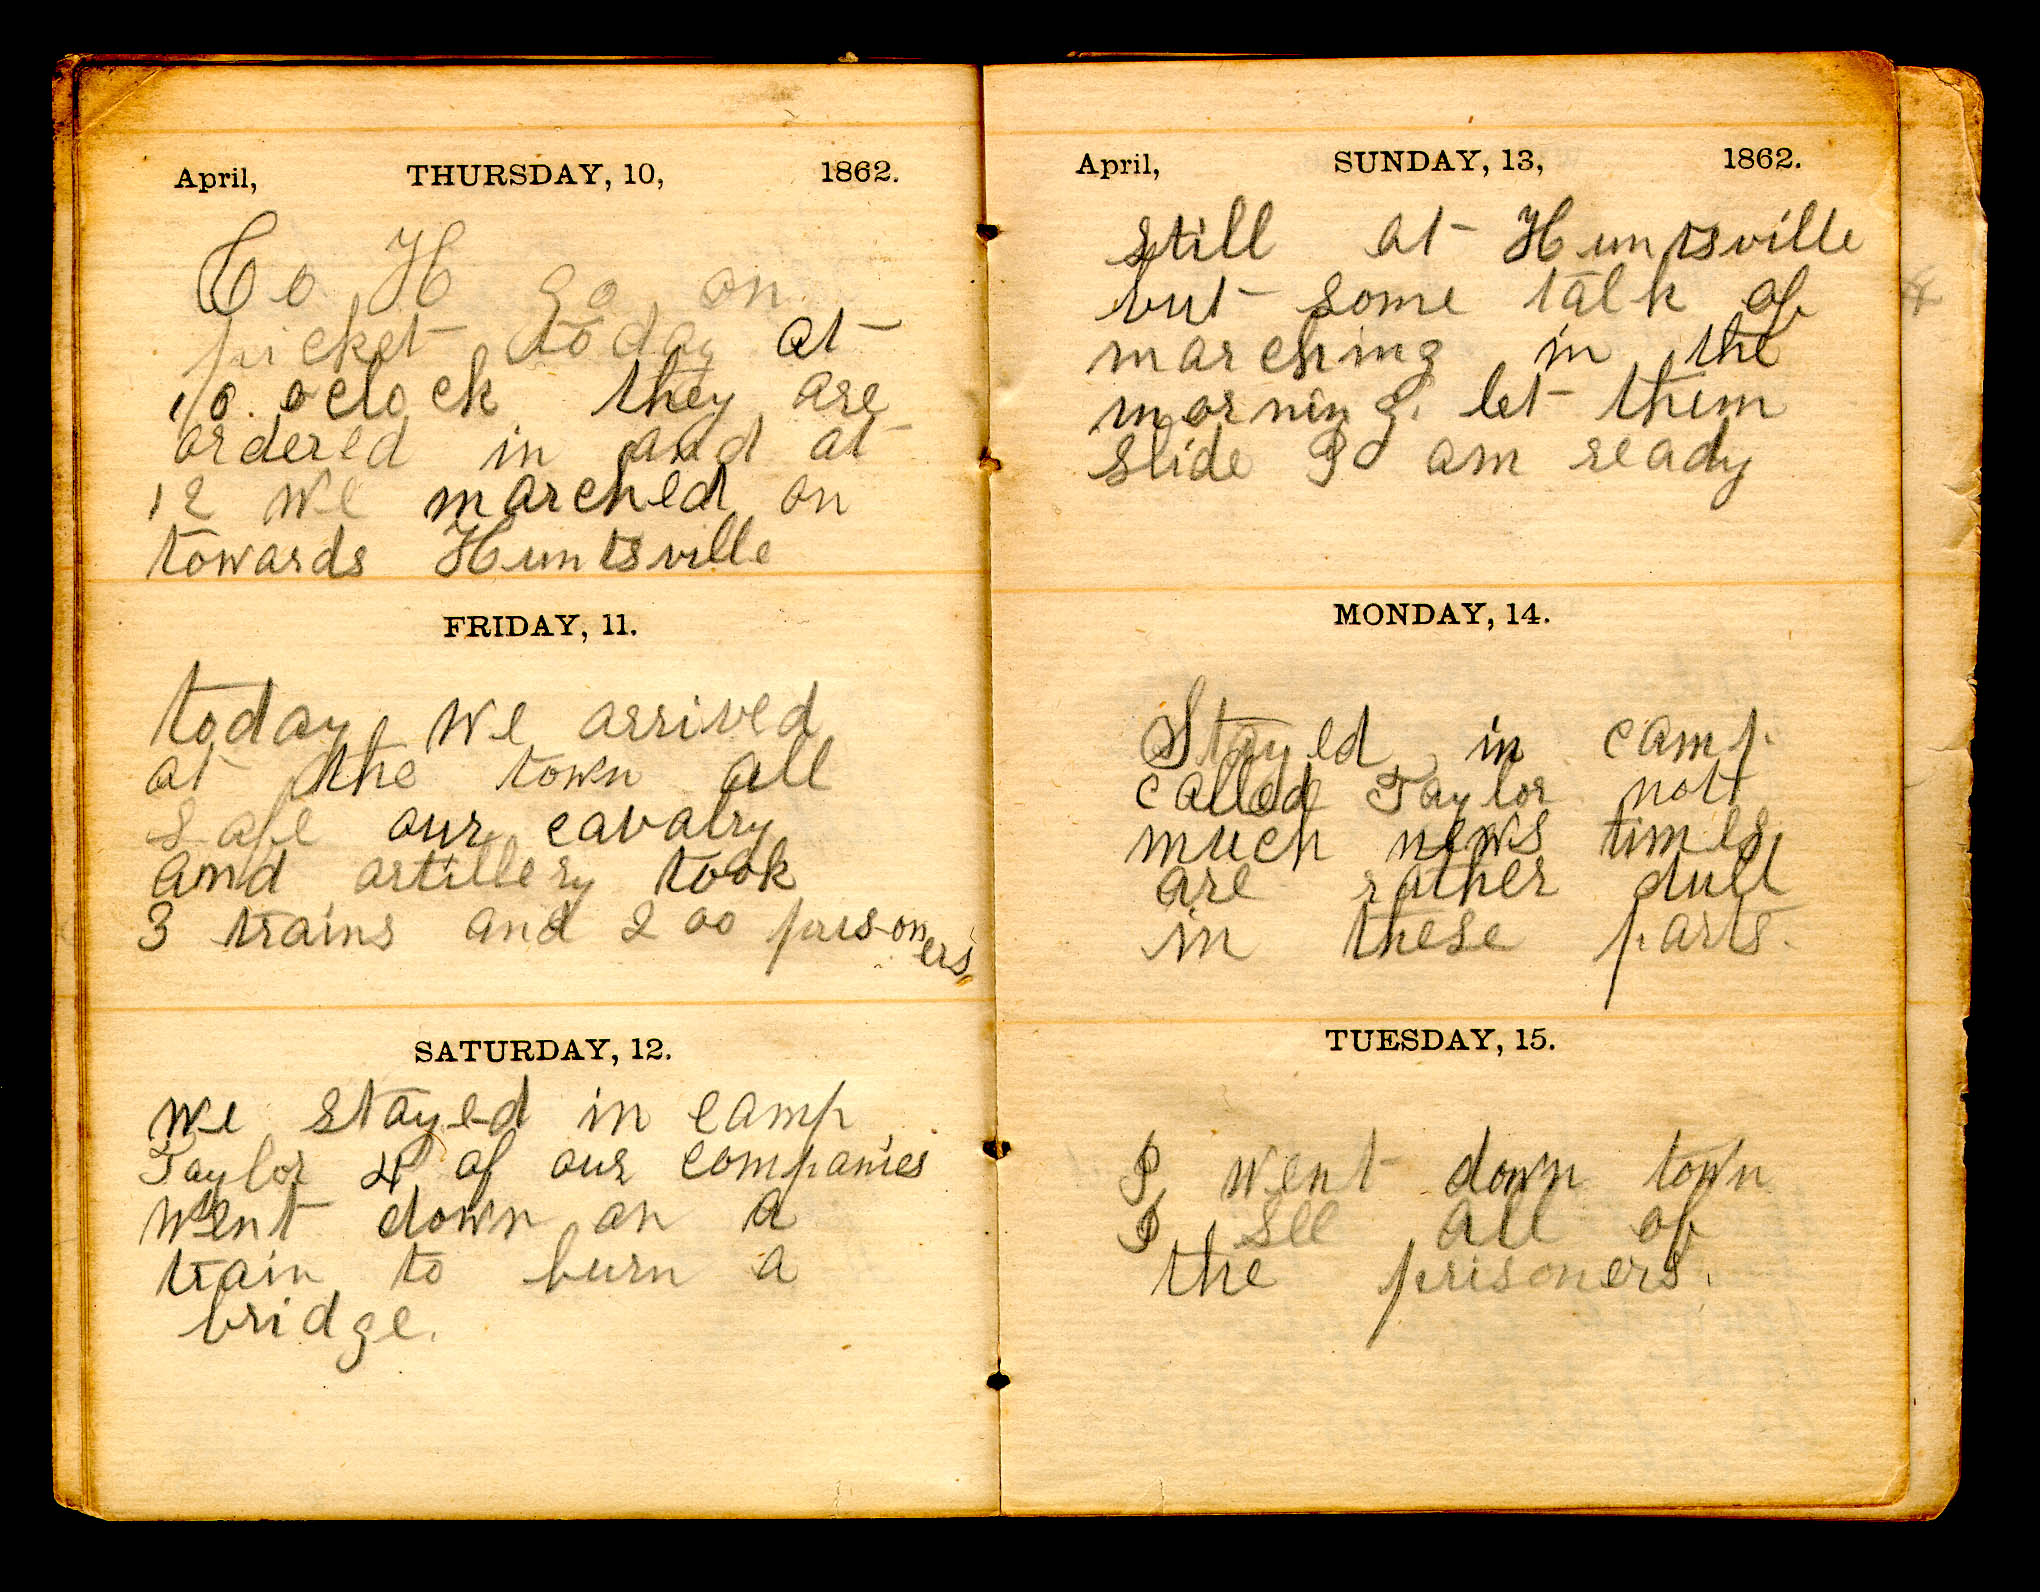 April, THURSDAY, 10, 1862.
Co H go on
picket today at
10. oclock they are
ordered in and at
12 we marched on
towards Huntsville
FRIDAY, 11.
today we arrived
at the town all
safe our cavalry
and artillery took
3 trains and 200 prisoners
SATURDAY, 12.
we stayed in camp
Taylor 4 of our companies
went down on a
train to burn a
bridge.
April, SUNDAY, 13, 1862.
still at Huntsville
but some talk of
marching in the
morning. let them
slide I am ready
MONDAY, 14.
Stayed in camp
called Taylor not
much news times
are rather dull
in these parts.
TUESDAY, 15.
I went down town
I see all of
the prisoners.